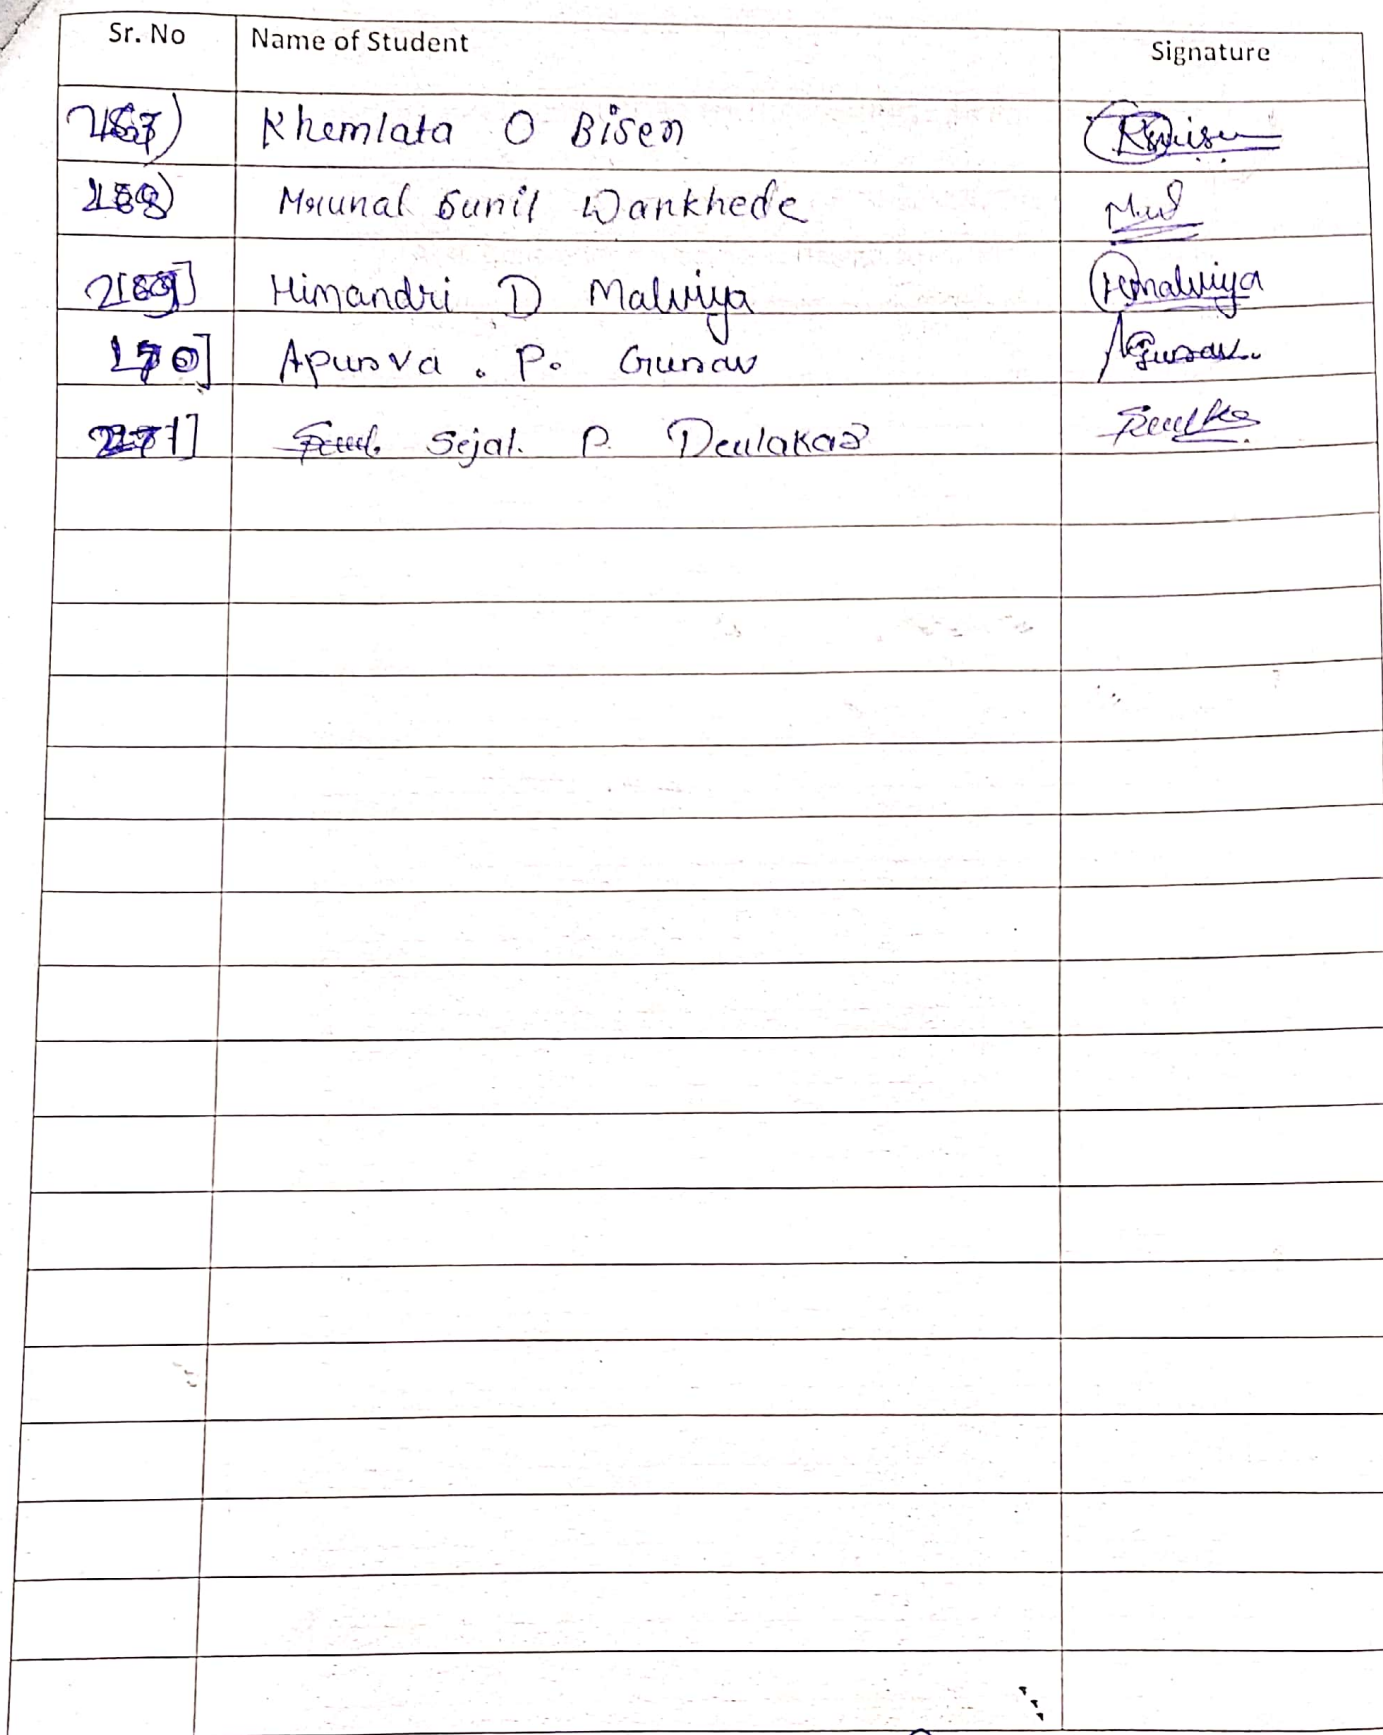 Sr. No Name of Student Signature
Khemlata O Bisen
Mrunal Sunil Wankhede
Himandri D Malviya Hmalviya
170] Apurva . P. Gurav Gurav..
Sejal. P. Deulakar